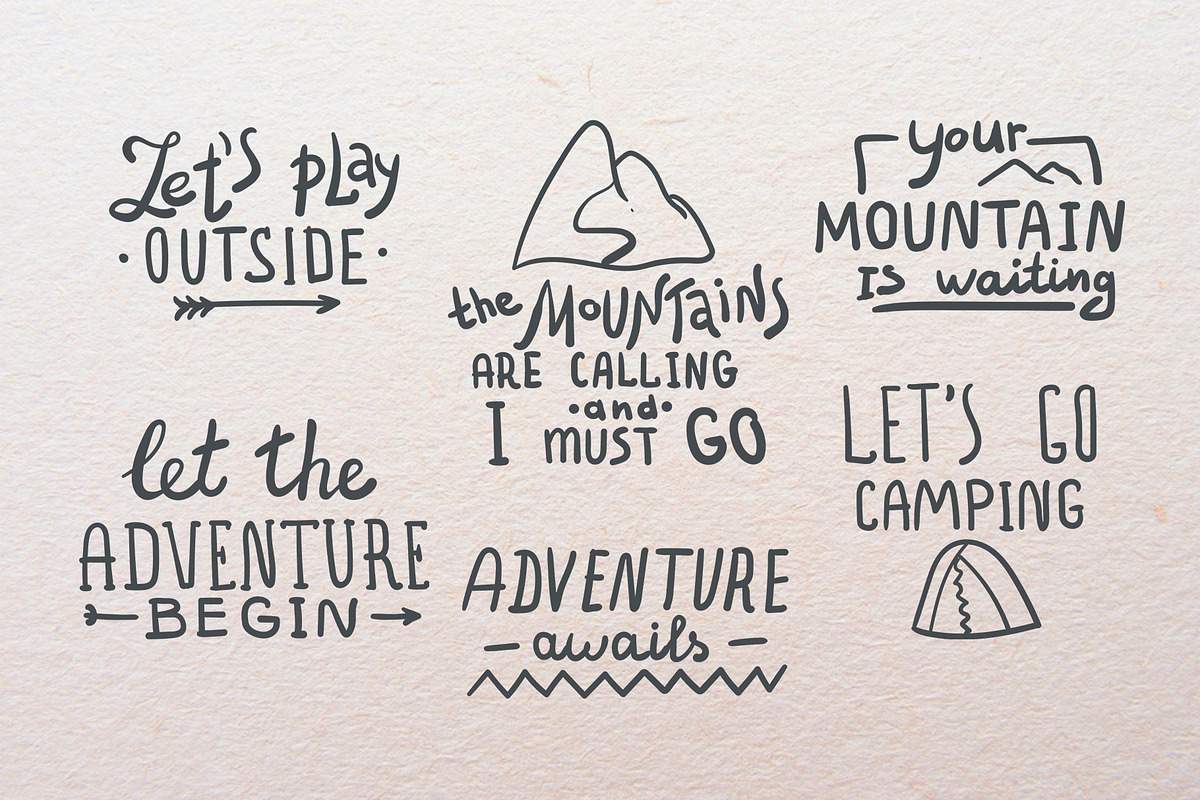 Let's play
·OUTSIDE·
the MOUNTains
ARE CALLING
·and·
I MUST GO
your
MOUNTAIN
Is waiting
let the
ADVENTURE
BEGIN
ADVENTURE
– awaits –
LET'S GO
CAMPING